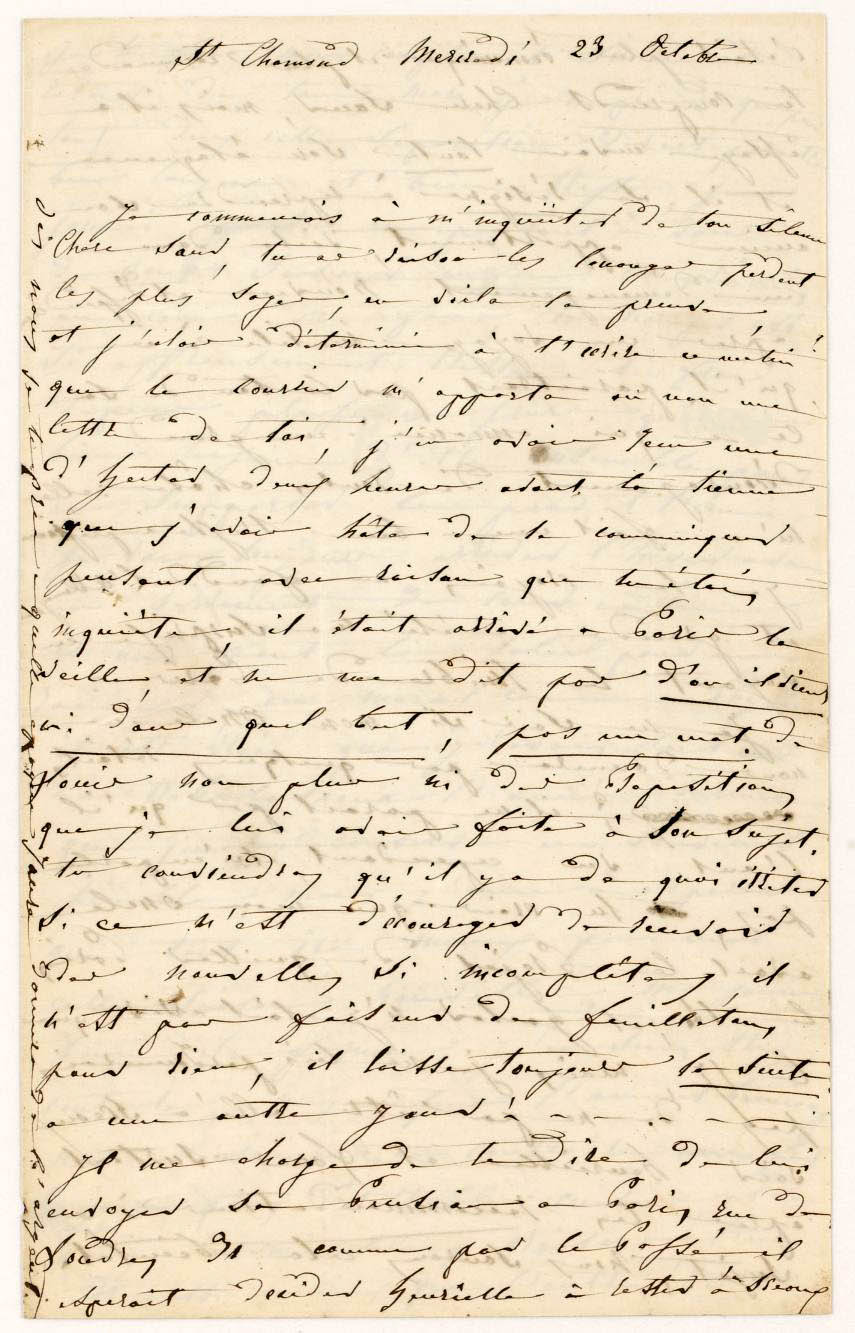 St Chamond Mercredi 23 Octobre
Je commencois à m'inquiëter de ton silence
Chere Sœur, tu as raison les louanges perdent
les plus sages, en voila la preuve
et j'etois déterminée à t'ecrire ce matin
que le courrier m'apporta ou non une
lettre de toi, j'en avois reçu une
d'Hector deux heures avant la tienne
que j'avois hâte de te communiquer
pensant avec raison que tu étois
inquiéte, il était arrivé a Paris la
veille et ne me dit pas d'ou il vient
ni dans quel but, pas un mot de
Louis non plus ni des Propositions
que je lui avois faite à son sujet,
tu conviendras qu'il y a de quoi irriter
si ce n'est décourager de recevoir
des nouvelles si incomplétes, il
n'est pas faiseur de feuilletons
pour rien, il laisse toujours la suite
a une autre jour! - - - - - -
Il me charge de te dire de lui
envoyer sa Pension a Paris, rue de
Londres 31 comme par le Passé il
esperait decider Henriette à rester à Sceaux
dis nous je te prie a quelle époque j'aurai
de l'argent.